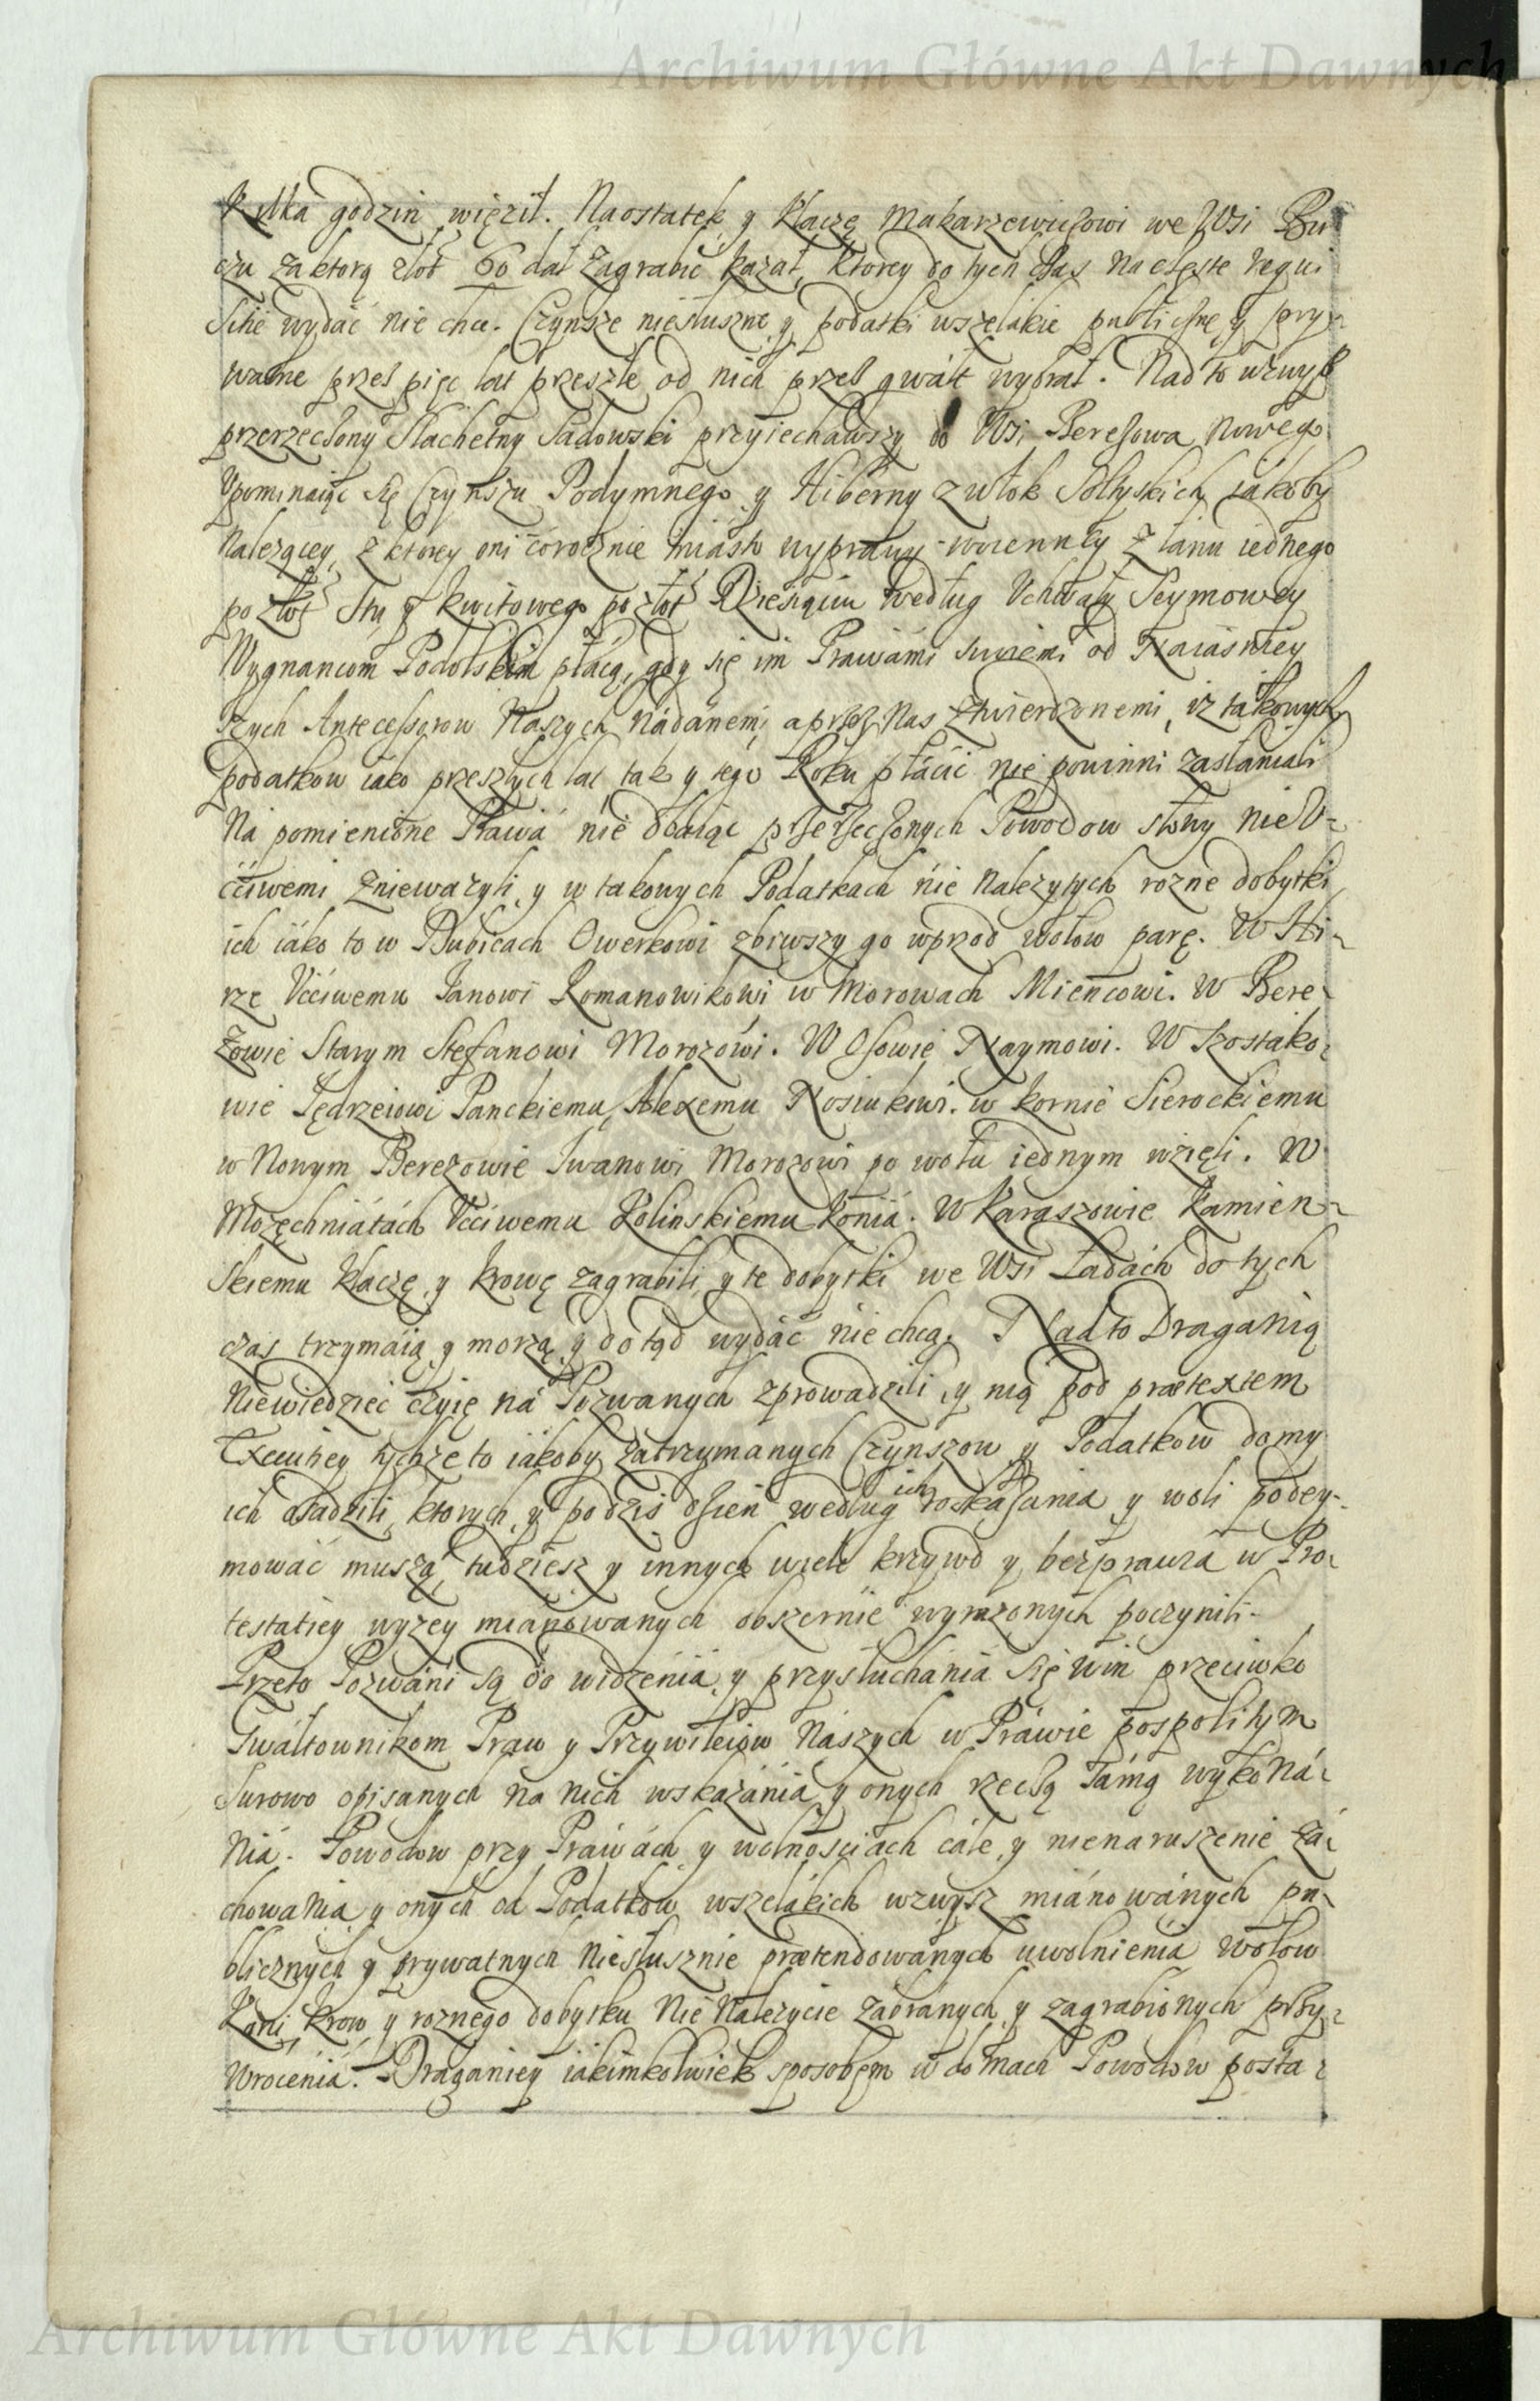 Archiwum Główne Akt Dawnych
Kilka godzin więził. Naostatek y klaczę Makarzewiczowi we Wsi Bu
czu za ktorą złot 60 dał zagrabić kazał, ktorey do tych czas na częste requi
sitie wydać nie chce. Czynsze niesłuszne y podatki wszelakie publiczne y pry-
watne przes pięc lat przeszłe od nich przes gwałt wybrał. Nad to wzwyß
przerzeczony Slachetny Sadowski przyiechawszy do Wsi Beresowa Nowego
Upominaiąc się Czynszu Podymnego y Hiberny z włok Sołtyskich iakoby
należącey, z ktorey oni corocznie miasto wyprawy woienney z łanu iednego
po złot Stu y kwitowego po złot Dziesiąciu według Uchwały Seymowey
Wygnancom Podolskim płacą, gdy się im Prawámi swiemi od Naiásniey
szych Antecessorow Naszych nádánemi, a przez Nas ztwierdzonemi, iz takowych
podatkow iáko przeszłych lat tak y tego Roku płácić nie powinni zasłaniali
Ná pomienione Prawá nie dbaiąc przerzeczonych Powodow słowy nie U-
czciwemi zniewazyli, y w takowych Podatkach nie należytych rozne dobytki
ich iáko to w Dubicach Owerkowi zbiwszy go wprzod wołow parę. W Hi-
rze Uczciwemu Janowi Romanowikowi w Morowach Miencowi. W Bere-
zowie Starym Stefanowi Morozowi. W Osowie Naymowi. W Szostako-
wie Jędrzeiowi Panckiemu, Alexemu Nosiukiwi. w Kornie Sierockiemu
w Nowym Berezowie Iwanowi Morozowi po wołu iednym wzięli. W
Mozęchniátách Uczciwemu Kolinskiemu Konia. W Karaszowie Kamien-
skiemu klaczę, y krowę zagrabili, y te dobytki we Wsi Ładách do tych
czas trzymáią y morzą y do tąd wydáć nie chcą. Nad to Draganią
Niewiedziec czyię ná Pozwanych zprowadzili, y nią pod prætextem
Exeucitiey tychze to iákoby zatrzymanych Czynszow y Podatkow domy
ich osadzili, ktorych y po dzis dzień według ich roskasania y woli podey-
mowáć muszą, tudziesz y innych wiele krzywd y bezprawia w Pro-
testatiey wyzey mianowanych obszernie wyrazonych poczynili.
Przeto Pozwáni są do widzenia, y przysłuchania się win przeciwko
Gwáłtownikom Praw y Przywileiow Nászych w Práwie pospolitym
Surowo opisanych na nich wskazánia y onych rzeczą sámą wykoná-
niá. Powodow przy Práwách y wolnosciach cále, y nienaruszenie zá-
chowania y onych od Podatkow wszelákich wzwysz miánowánych pu-
blicznych y prywatnych niesłusznie prætendowánych uwolnienia wołow
Koni, krow y roznego dobytku nie należycie zábranych, y zagrabionych przy-
wrocenia. Draganiey iákimkolwiek sposobem w domach Powodow posta-
Archiwum Główne Akt Dawnych